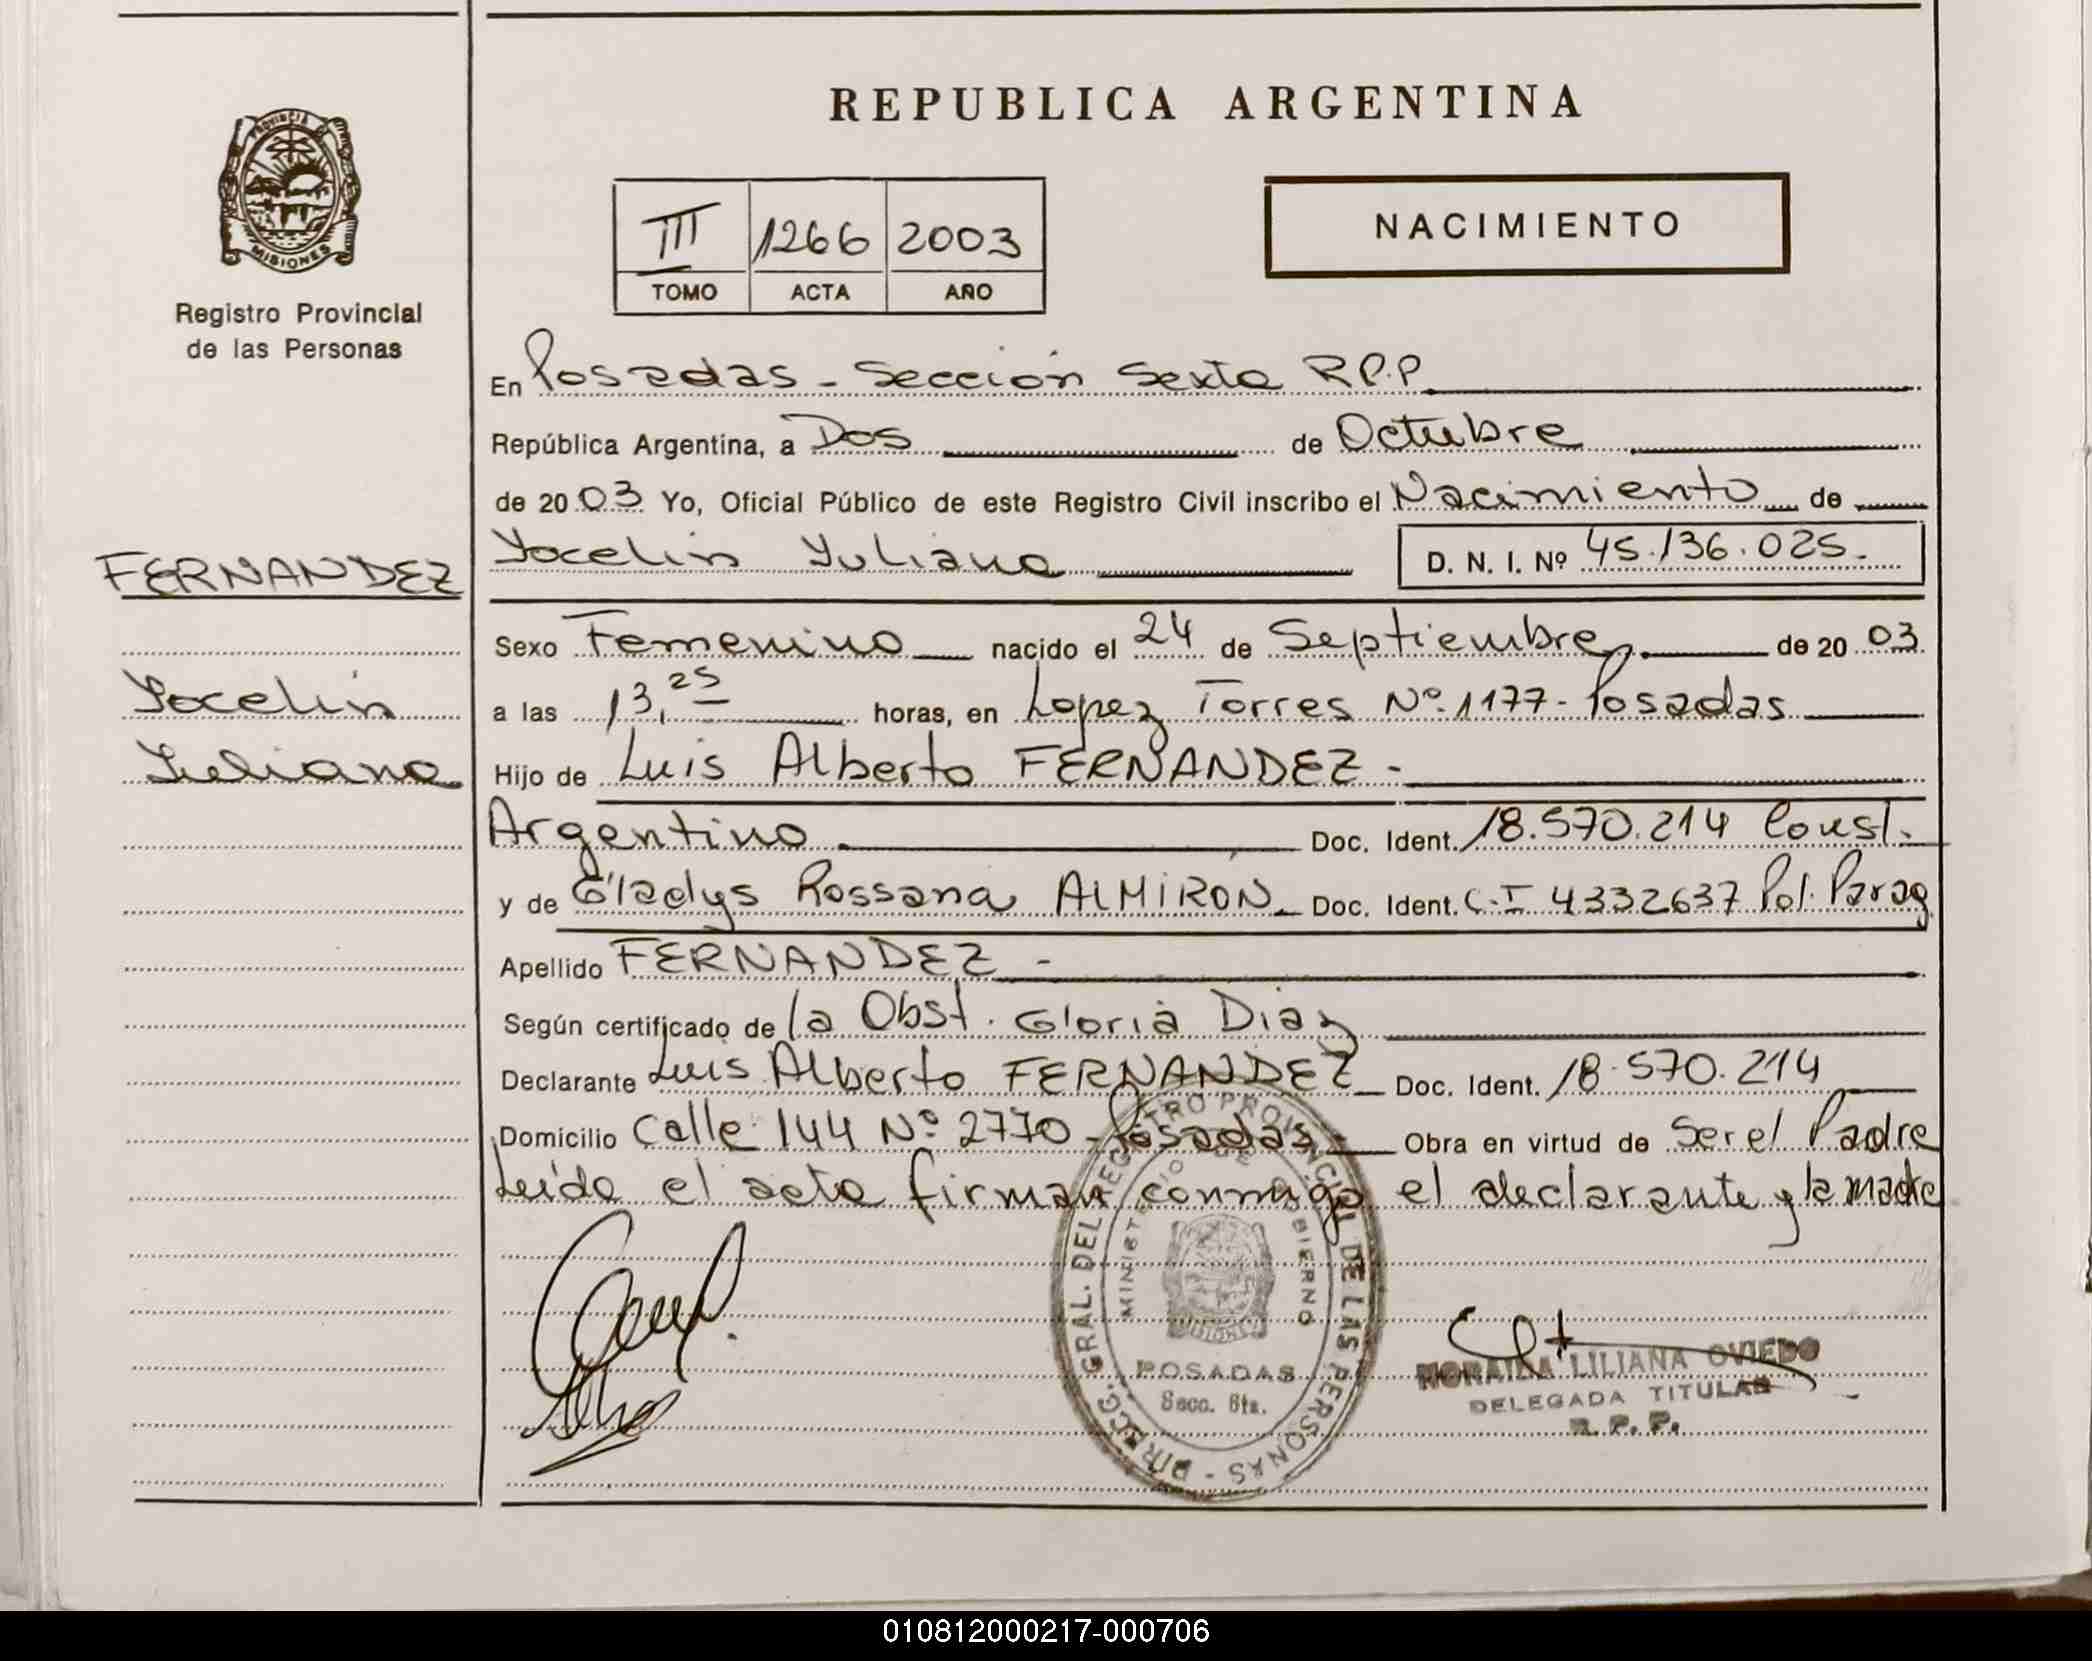 REPUBLICA ARGENTINA
PROVINCIA DE
MISIONES
Registro Provincial
de las Personas
III 1266 2003
TOMO ACTA AÑO
NACIMIENTO
En Posadas - Sección Sexta R.P.P.
República Argentina, a Dos de Octubre
de 2003 Yo, Oficial Público de este Registro Civil inscribo el Nacimiento de
Yocelin Yuliana D. N. I. Nº 45.136.025.
FERNANDEZ
Yocelin
Yuliana
Sexo Femenino nacido el 24 de Septiembre de 2003
a las 13,25 horas, en Lopez Torres Nº 1177 - Posadas
Hijo de Luis Alberto FERNANDEZ -
Argentino Doc. Ident. 18.570.214 Const.
y de Gladys Rossana ALMIRON Doc. Ident. C.I 4332637 Pol. Parag
Apellido FERNANDEZ -
Según certificado de la Obst. Gloria Diaz
Declarante Luis Alberto FERNANDEZ Doc. Ident. 18.570.214
Domicilio Calle 144 Nº 2770 - Posadas - Obra en virtud de Ser el Padre
Leída el acta firman conmigo el declarante y la madre
DIRECG. GRAL. DEL REGISTRO PROVINCIAL DE LAS PERSONAS -
MINISTERIO DE GOBIERNO
MISIONES
POSADAS
Secc. 6ta.
NORAIDA LILIANA OVIEDO
DELEGADA TITULAR
R. P. P.
010812000217-000706